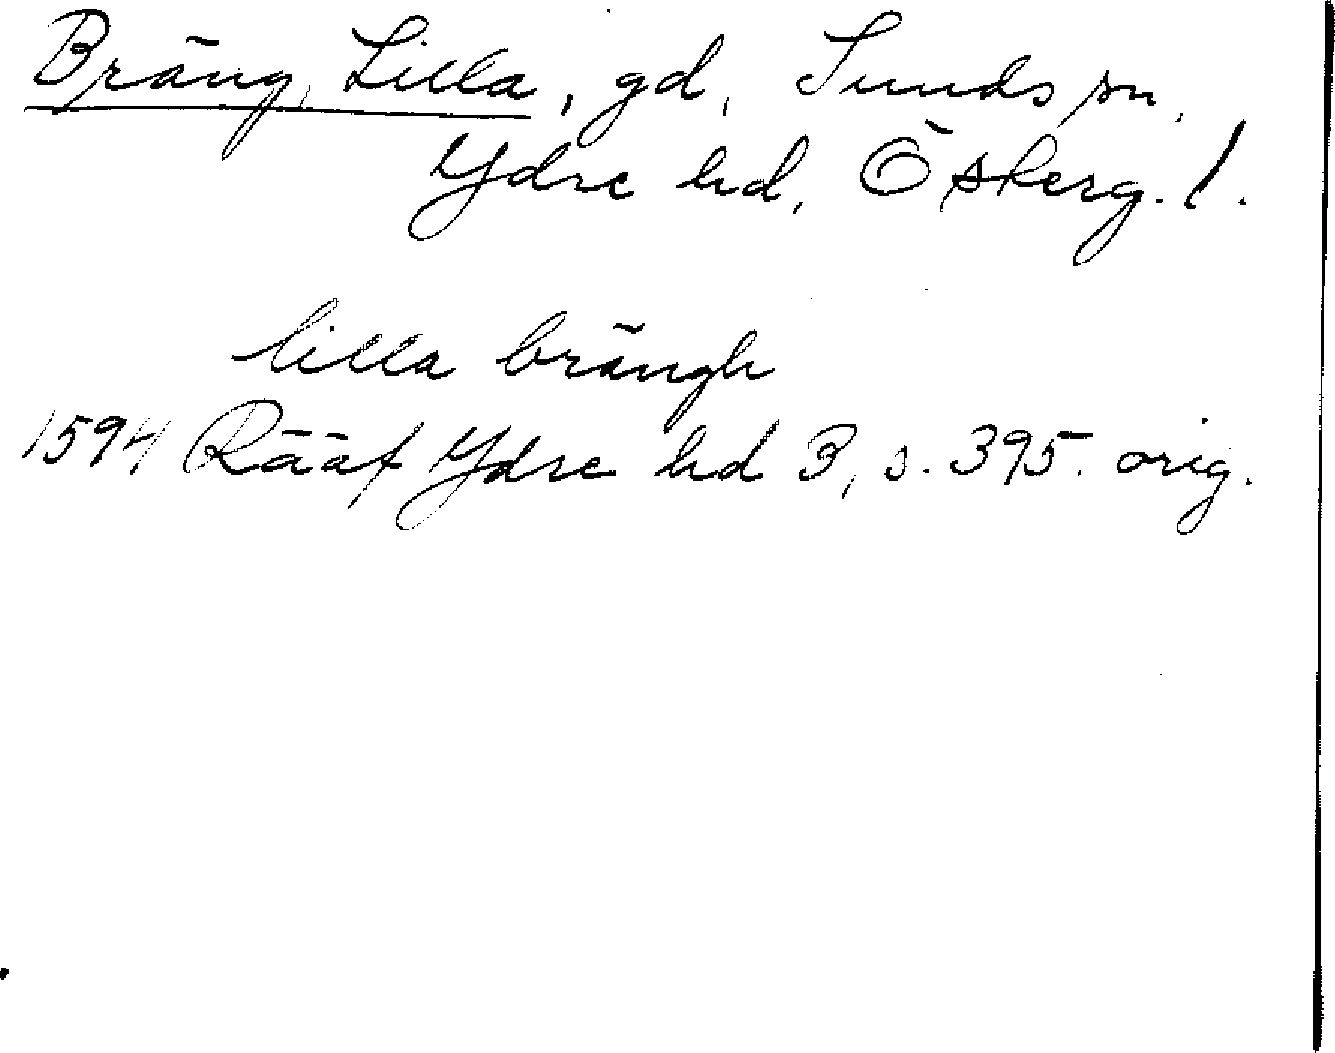 Bräng, Lilla, gd, Sunds sn,
Ydre hd, Östergs. l.
lilla brängh
1594 Rääf Ydre hd 3, s. 395. orig.